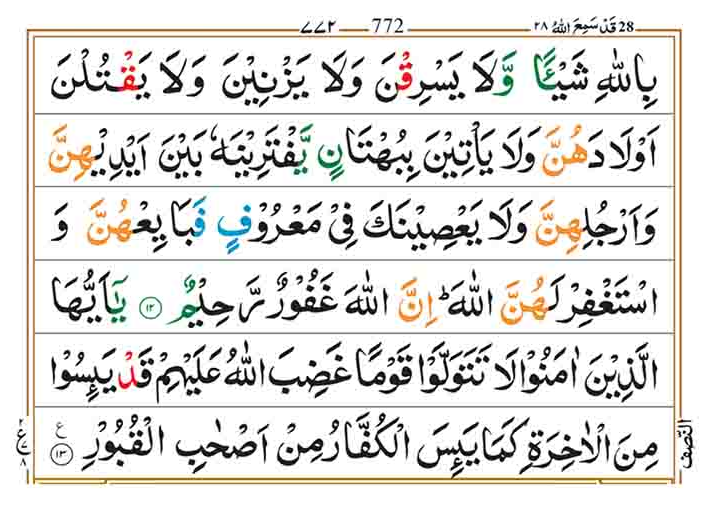 28 قَدْ سَمِعَ اللهُ ٢٨ — 772 — ٧٧٢
بِاللّٰهِ شَيْـًٔا وَّ لَا يَسْرِقْنَ وَلَا يَزْنِيْنَ وَلَا يَقْتُلْنَ
اَوْلَادَهُنَّ وَلَا يَاْتِيْنَ بِبُهْتَانٍ يَّفْتَرِيْنَهٗ بَيْنَ اَيْدِيْهِنَّ
وَاَرْجُلِهِنَّ وَلَا يَعْصِيْنَكَ فِيْ مَعْرُوْفٍ فَبَايِعْهُنَّ وَ
اسْتَغْفِرْ لَهُنَّ اللّٰهَ ؕ اِنَّ اللّٰهَ غَفُوْرٌ رَّحِيْمٌ ١٢ يٰۤاَيُّهَا
الَّذِيْنَ اٰمَنُوْا لَا تَتَوَلَّوْا قَوْمًا غَضِبَ اللّٰهُ عَلَيْهِمْ قَدْ يَىِٕسُوْا
مِنَ الْاٰخِرَةِ كَمَا يَىِٕسَ الْكُفَّارُ مِنْ اَصْحٰبِ الْقُبُوْرِ ١٣ ع
النِّصْف
٢ ع ٧ ٨